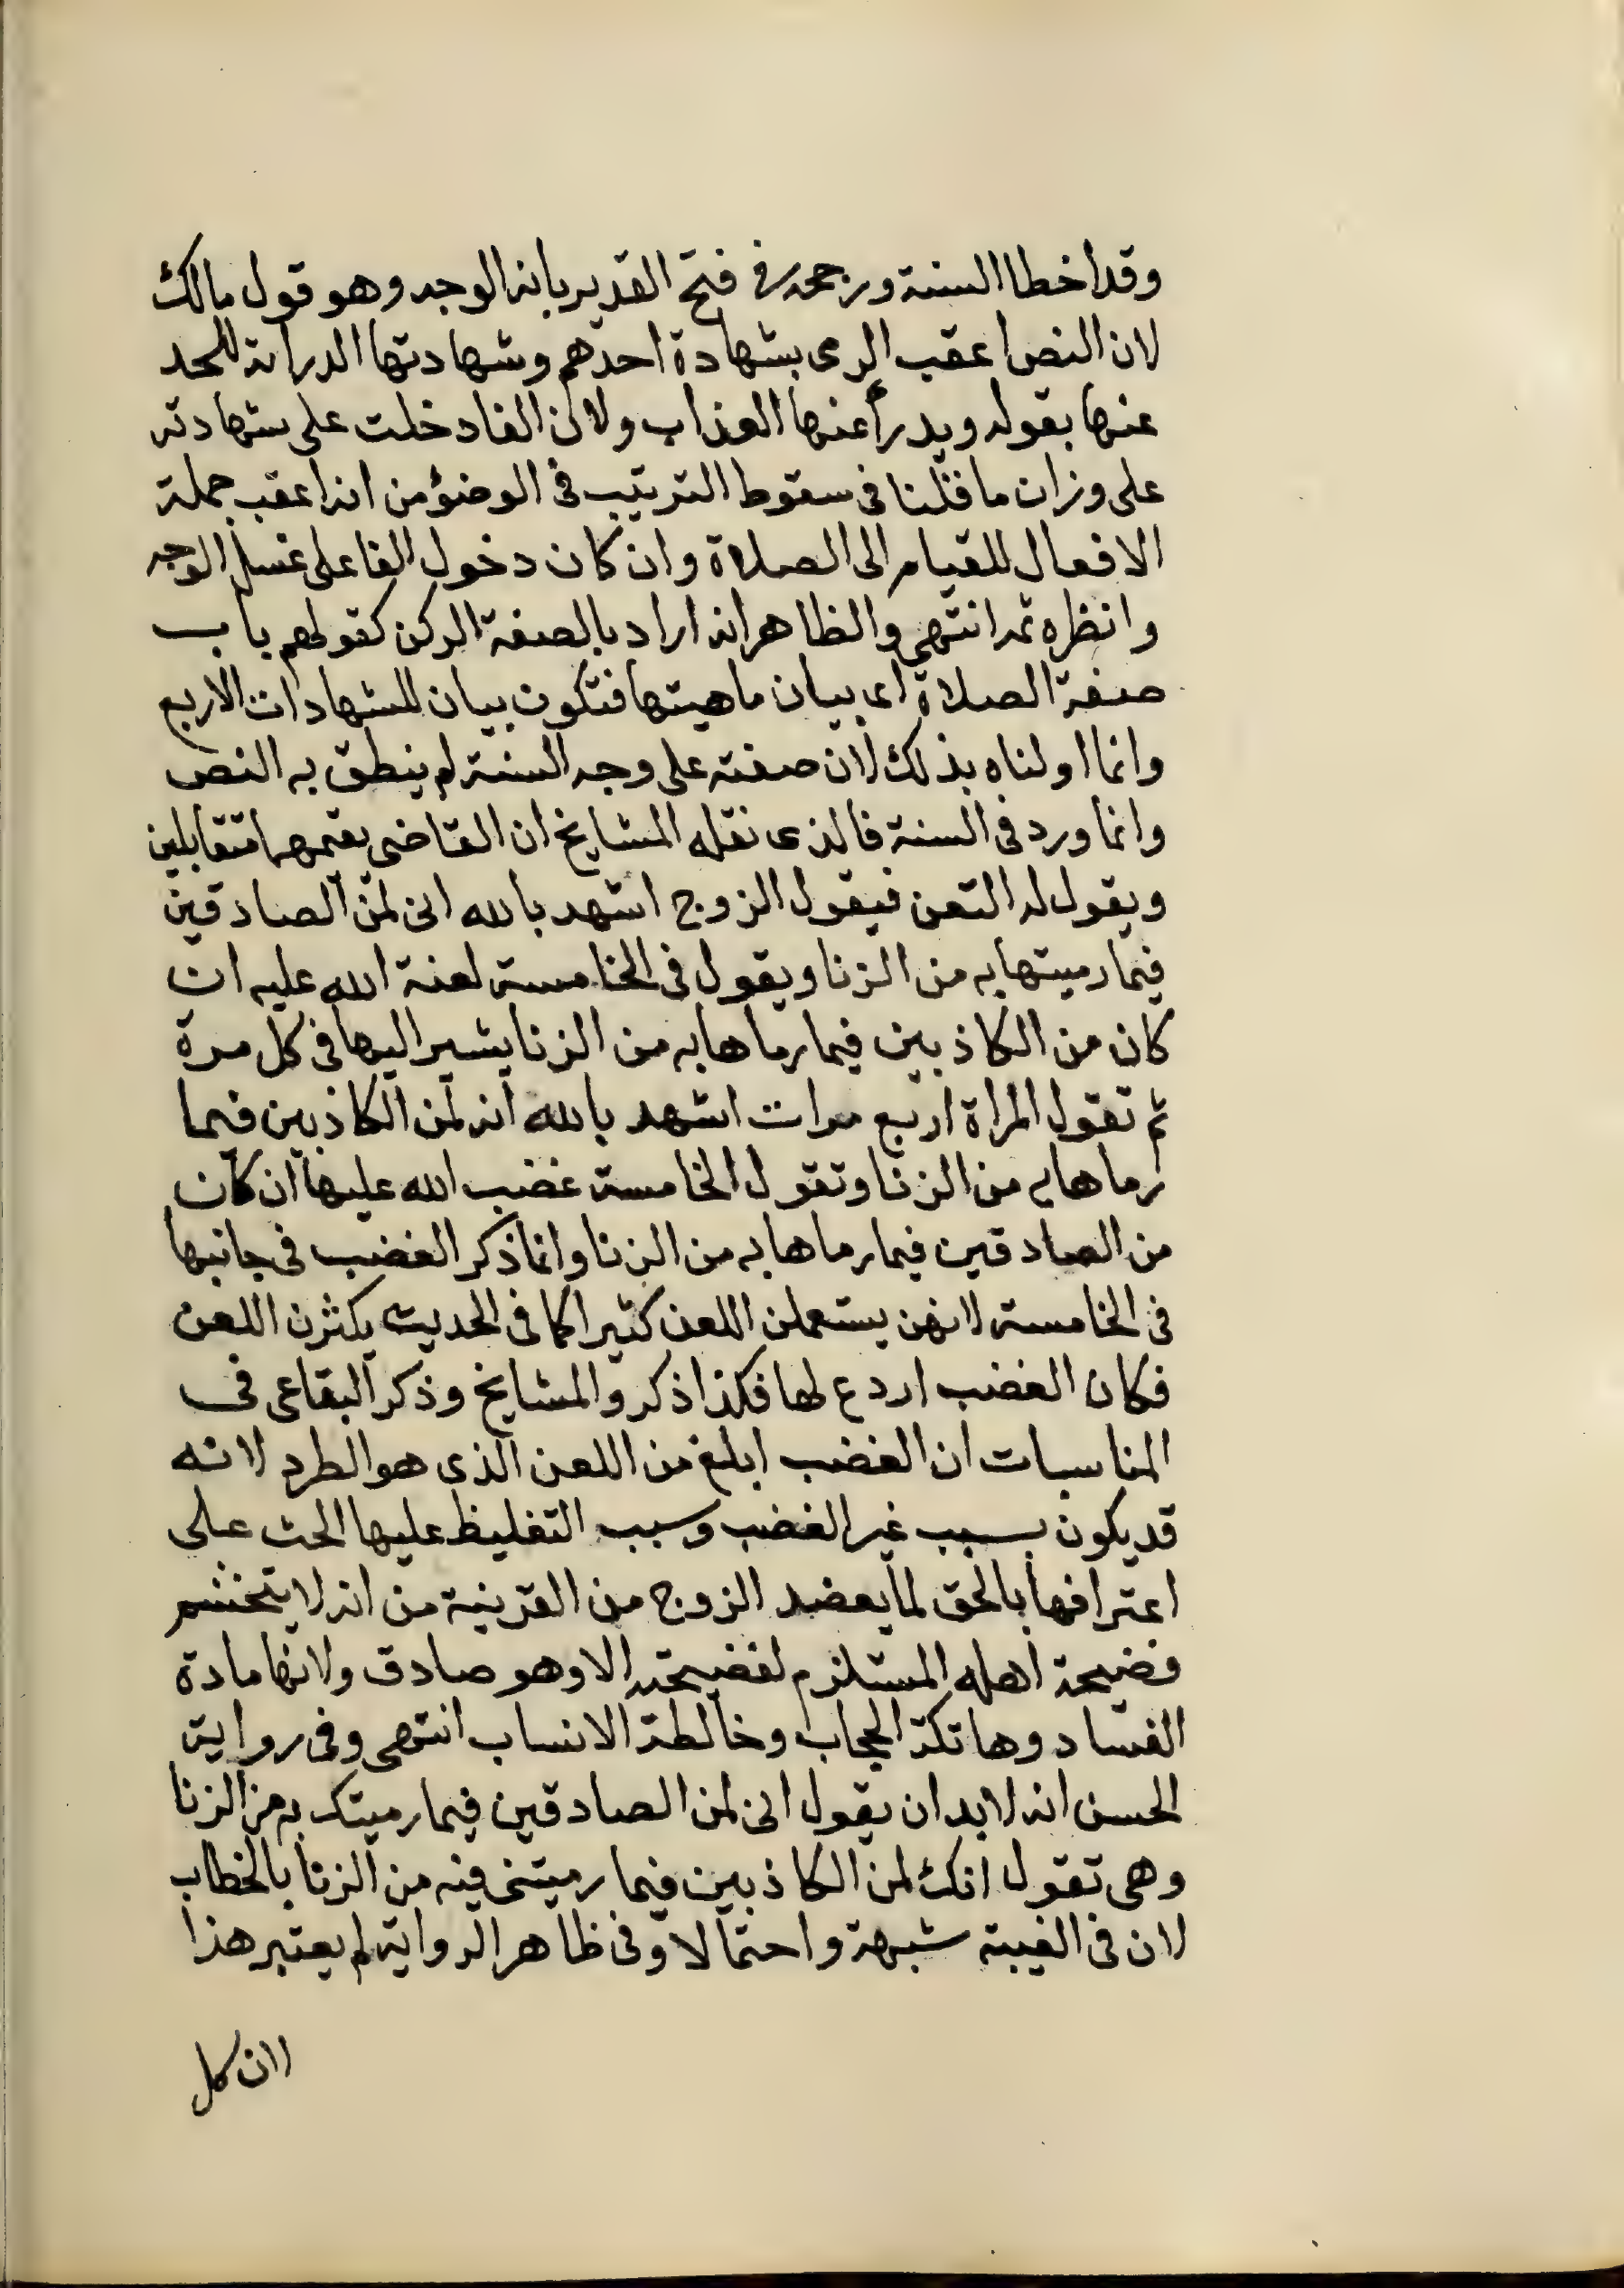 وقد اخطا السنة ورجحه في فتح القدير بانه الوجه وهو قول مالك
لان النص اعقب الرمى بشهادة احدهم وشهادتها الدراءة للحد
عنها بقوله ويدرأ عنها العذاب ولان الفا دخلت على شهادته
على وزان ما قلنا فى سقوط الترتيب فى الوضوء من انه اعقب جملة
الافعال للقيام الى الصلاة وان كان دخول الفا على غسل الوجه
وانظره ثمه انتهى والظاهر انه اراد بالصفة الركن كقولهم باب
صفة الصلاة اى بيان ماهيتها فتكون بيان للشهادات الاربع
وانما اولناه بذلك لان صفته على وجه السنة لم ينطق به النص
وانما ورد فى السنة فالذى نقله المشايخ ان القاضى يقيمهما متقابلين
ويقول له التعن فيقول الزوج اشهد بالله انى لمن الصادقين
فيما رميتها به من الزنا ويقول فى الخامسة لعنة الله عليه ان
كان من الكاذبين فيما رماها به من الزنا يشير اليها فى كل مرة
ثم تقول المراة اربع مرات اشهد بالله انه لمن الكاذبين فيما
رماها به من الزنا وتقول الخامسة غضب الله عليها ان كان
من الصادقين فيما رماها به من الزنا وانما ذكر الغضب فى جانبها
فى الخامسة لانهن يستعملن اللعن كثيرا كما فى الحديث يكثرن اللعن
فكان الغضب اردع لها فكذا ذكر والمشايخ وذكر البقاعى فى
المناسبات ان الغضب ابلغ من اللعن الذى هو الطرد لانه
قد يكون بسبب غير الغضب وسبب التغليظ عليها الحث على
اعترافها بالحق لما يعضد الزوج من القرينة من انه لا يتخشم
فضيحة اهله المستلزم لفضيحته الا وهو صادق ولانها مادة
الفساد وهاتكة الحجاب وخالطة الانساب انتهى وفى رواية
الحسن انه لا بد ان يقول انى لمن الصادقين فيما رميتك به من الزنا
وهى تقول انك لمن الكاذبين فيما رميتنى فيه من الزنا بالخطاب
لان فى الغيبة شبهة واحتمالا وفى ظاهر الرواية لم يعتبر هذا
لان كل